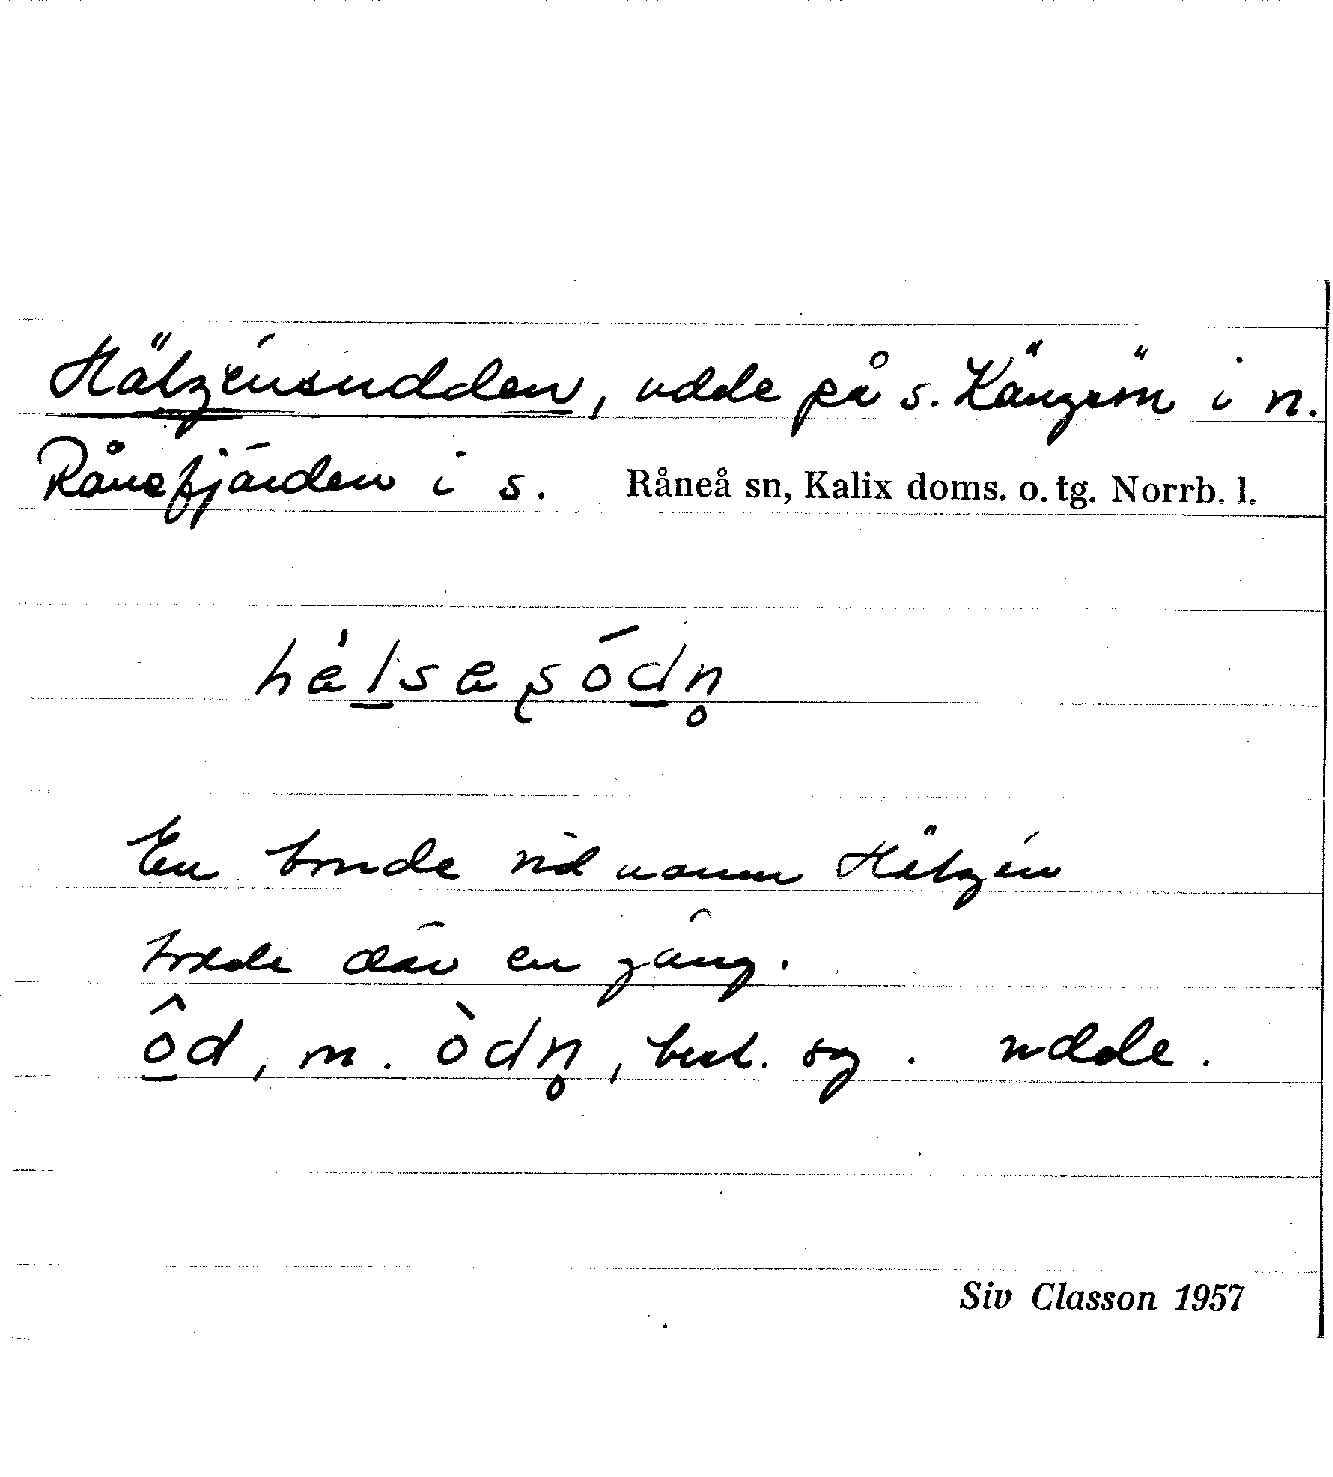 Hälzénsudden, udde på s. Kängsön i n.
Rånefjärden i s. Råneå sn, Kalix doms. o. tg. Norrb. l.
En bonde vid namn Hälzén
bodde där en gång.
ôd, m. òdn̥, best. sg. udde.
Siv Classon 1957